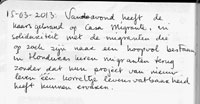 15-03-2013: Vanavond heeft de
kaars gebrand op Casa Migrante, in
solidariteit met de migranten die
op zoek zijn naar een hoopvol bestaan
in Honduras leven migranten terug
zonder dat hun project van nieuw
leven één korreltje levensvatbaarheid
heeft kunnen ervaren.